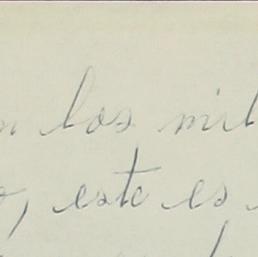 los mil
, esto es